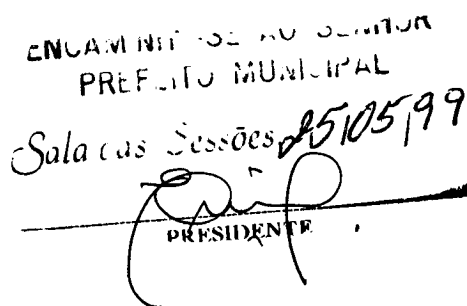 ENCAMINHE-SE AO SENHOR
PREFEITO MUNICIPAL
Sala das Sessões, 25/05/99
PRESIDENTE